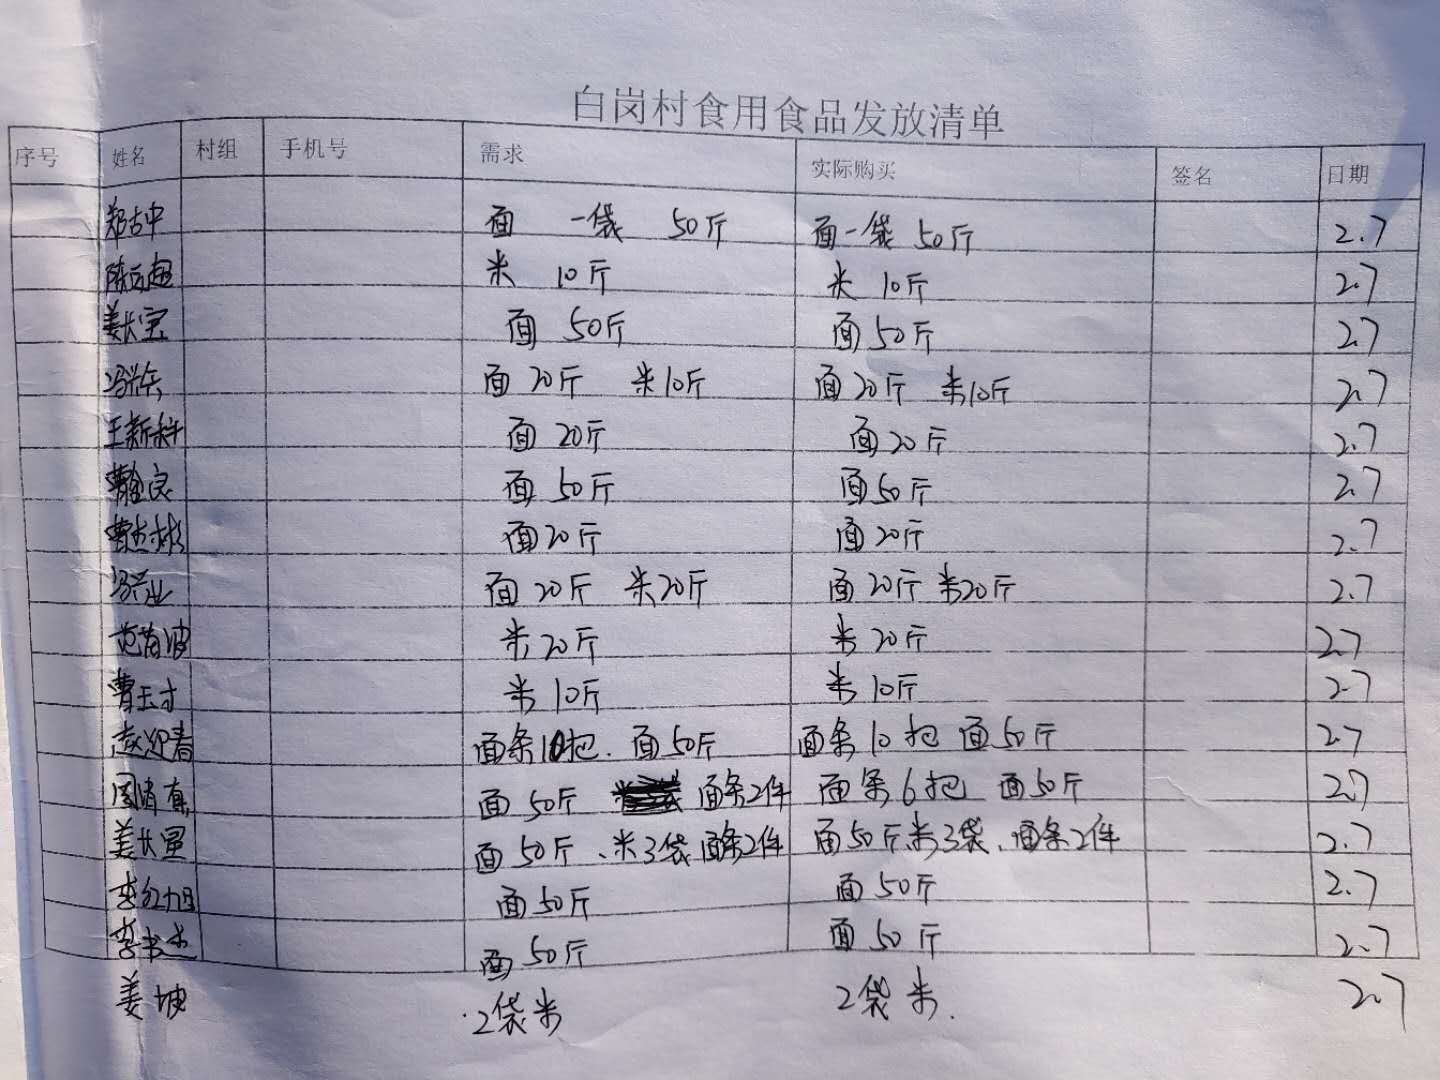 白岗村食用食品发放清单
序号 姓名 村组 手机号 需求 实际购买 签名 日期
郑古中 面 一袋 50斤 面一袋 50斤 2.7
陈远超 米 10斤 米 10斤 2.7
姜长宝 面 50斤 面 50斤 2.7
面 20斤 米10斤 面 20斤 米10斤 2.7
王新科 面 20斤 面 20斤 2.7
曹金良 面 50斤 面 50斤 2.7
曹杰彬 面 20斤 面 20斤 2.7
冯兴业 面 20斤 米20斤 面 20斤 米20斤 2.7
米 20斤 米 20斤 2.7
曹玉才 米 10斤 米 10斤 2.7
赵迎春 面条10把. 面 50斤 面条 10把 面 50斤 2.7
面 50斤 面条2件 面条 6把 面 50斤 2.7
面 50斤、米3袋、面条2件 面 50斤、米3袋、面条2件 2.7
李红旭 面 50斤 面 50斤 2.7
李书杰 面 50斤 面 50斤 2.7
姜坡 2袋米 2袋米. 2.7